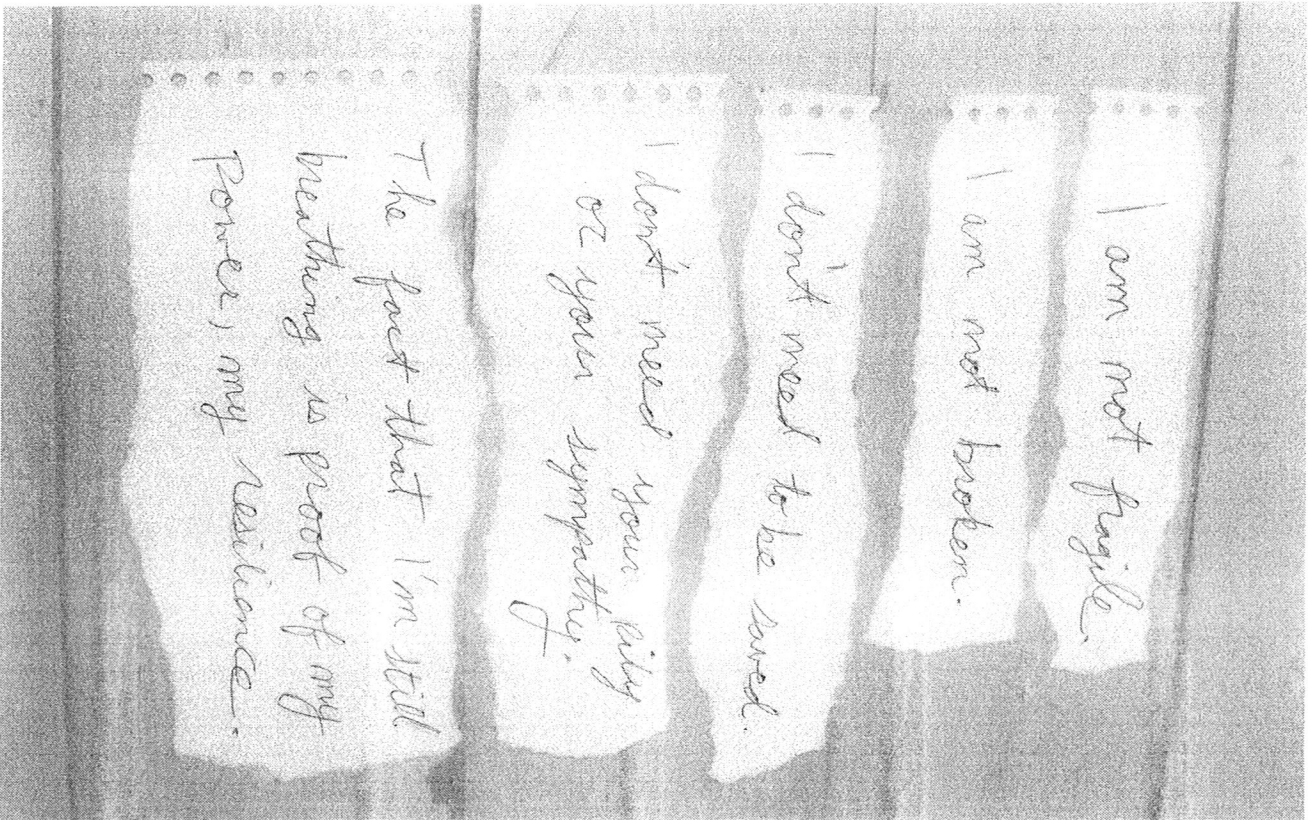 I am not fragile.
I am not broken.
I don't need to be saved.
I don't need your pity
or your sympathy.
The fact that I'm still
breathing is proof of my
power, my resilience.